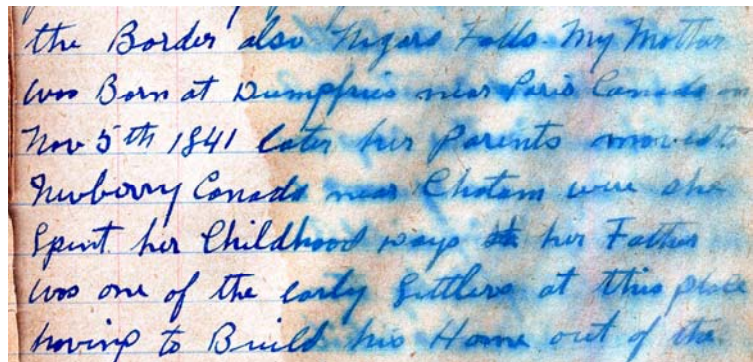 the Border also Nigara Falls My Mother
was Born at Dumfries near Paris Canada on
Nov 5th 1841 later her Parents moved to
Newberry Canada near Chatam were she
Spent her Childhood Days her Father
was one of the early Settlers at this place
having to Build his Home out of the